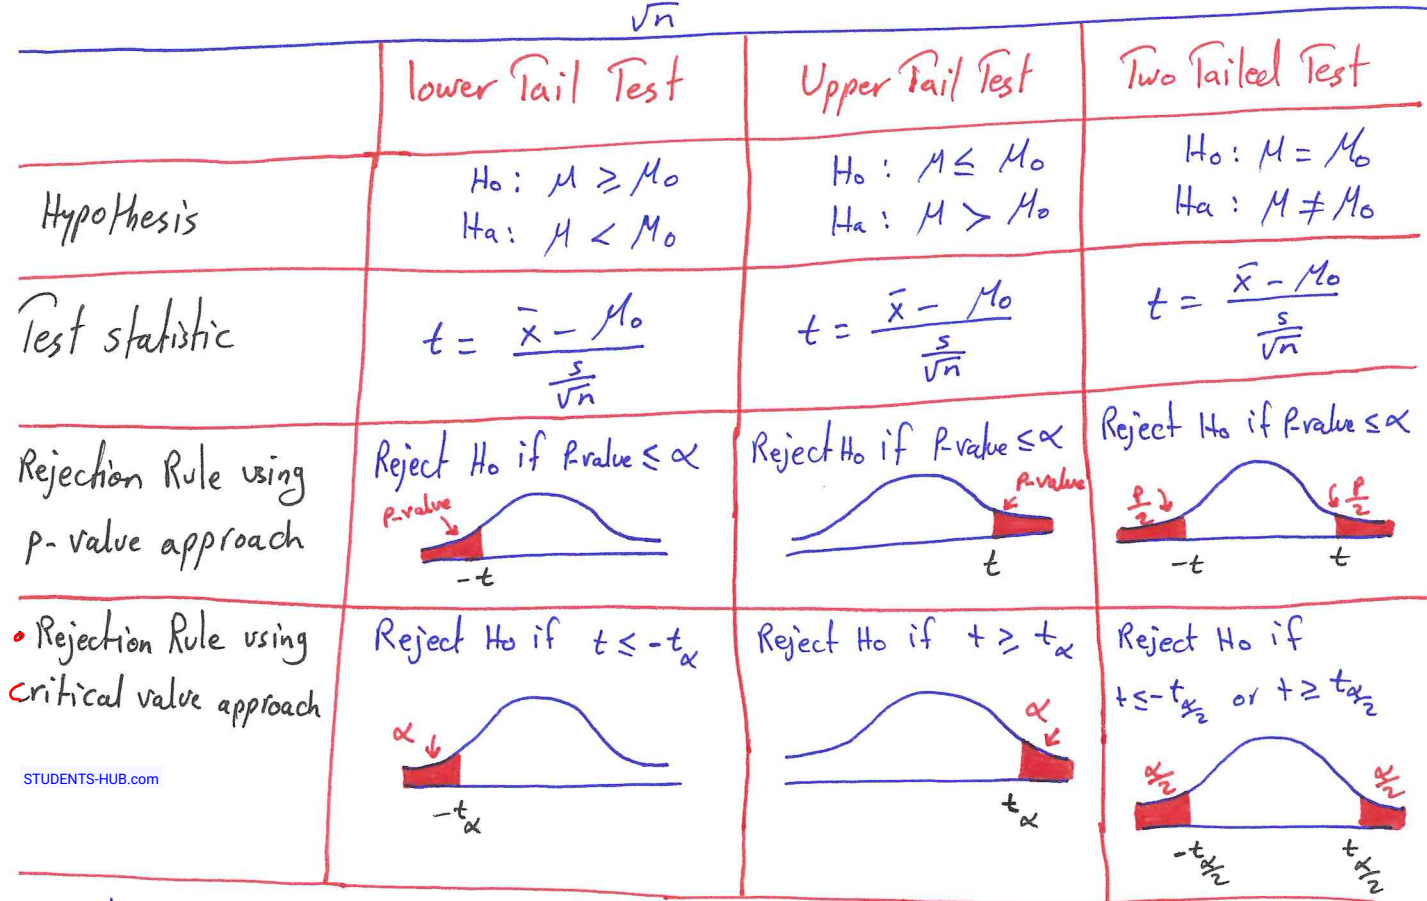 √n
lower Tail Test
Upper Tail Test
Two Tailed Test
Hypothesis
H₀: μ ≥ μ₀
Ha: μ < μ₀
H₀: μ ≤ μ₀
Ha: μ > μ₀
H₀: μ = μ₀
Ha: μ ≠ μ₀
Test statistic
t = x̄ - μ₀
s
√n
t = x̄ - μ₀
s
√n
t = x̄ - μ₀
s
√n
Rejection Rule using
p-value approach
Reject H₀ if P-value ≤ α
p-value
-t
Reject H₀ if P-value ≤ α
p-value
t
Reject H₀ if P-value ≤ α
P/2
P/2
-t
t
• Rejection Rule using
critical value approach
Reject H₀ if t ≤ -tα
α
-tα
Reject H₀ if t ≥ tα
α
tα
Reject H₀ if
t ≤ -tα/2 or t ≥ tα/2
α/2
α/2
-tα/2
tα/2
STUDENTS-HUB.com